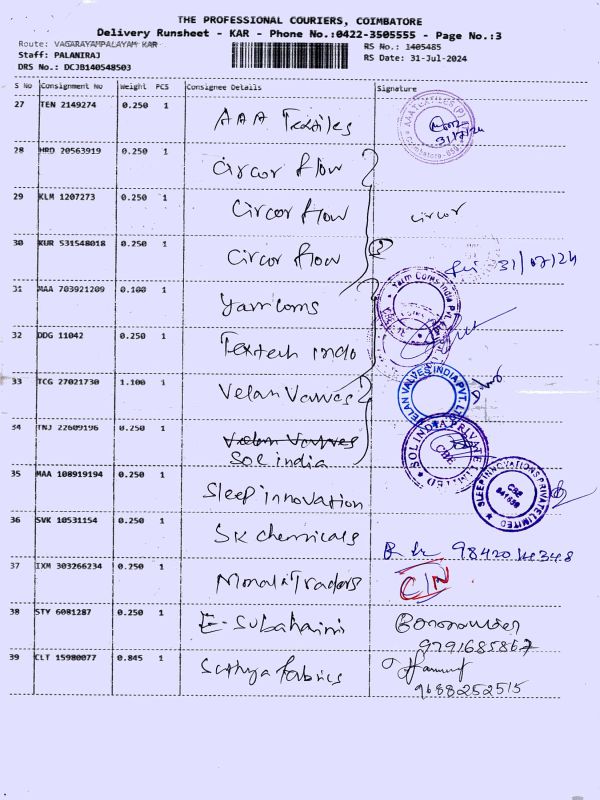 THE PROFESSIONAL COURIERS, COIMBATORE
Delivery Runsheet - KAR - Phone No.:0422-3505555 - Page No.:3
Route: VAGARAYAMPALAYAM KAR RS No.: 1405485
Staff: PALANIRAJ RS Date: 31-Jul-2024
DRS No.: DCJB140548503
S No Consignment No Weight PCS Consignee Details Signature
27 TEN 2149274 0.250 1 AAA Textiles 31/7/24
28 MRD 20563919 0.250 1 Circor flow
29 KLM 1207273 0.250 1 Circor flow circor
30 KUR 531548018 0.250 1 Circor flow 31/07/24
31 MAA 703921209 0.100 1 Yarn coms
32 DDG 11042 0.250 1 Textech indo
33 TCG 27021730 1.100 1 Velan Valves VELAN VALVES INDIA PVT. LTD
34 TNJ 22609196 0.250 1 Velan Valves
Sol india SOL INDIA PRIVATE LIMITED CBE
35 MAA 108919194 0.250 1 Sleep innovation SLEEP INNOVATIONS PRIVATE LIMITED CBE 641659
36 SVK 10531154 0.250 1 SK chemicals
37 IXM 303266234 0.250 1 Monal Traders
38 STY 6081287 0.250 1 E. Subahaini
9791685867
39 CLT 15980077 0.845 1 Sathya fabrics
9688252515